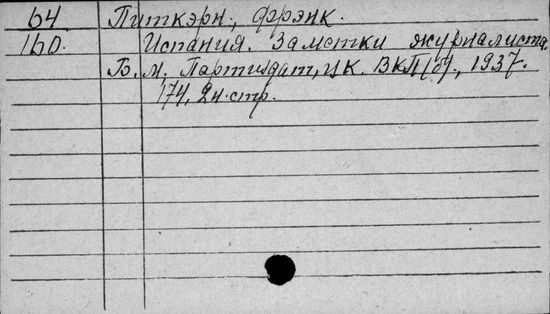 64 Питкэрн, Фрэнк.
160. Испания. Заметки журналиста.
Б. м. Партиздат, ЦК. ВКП(б)., 1937.
174, 2 н. стр.